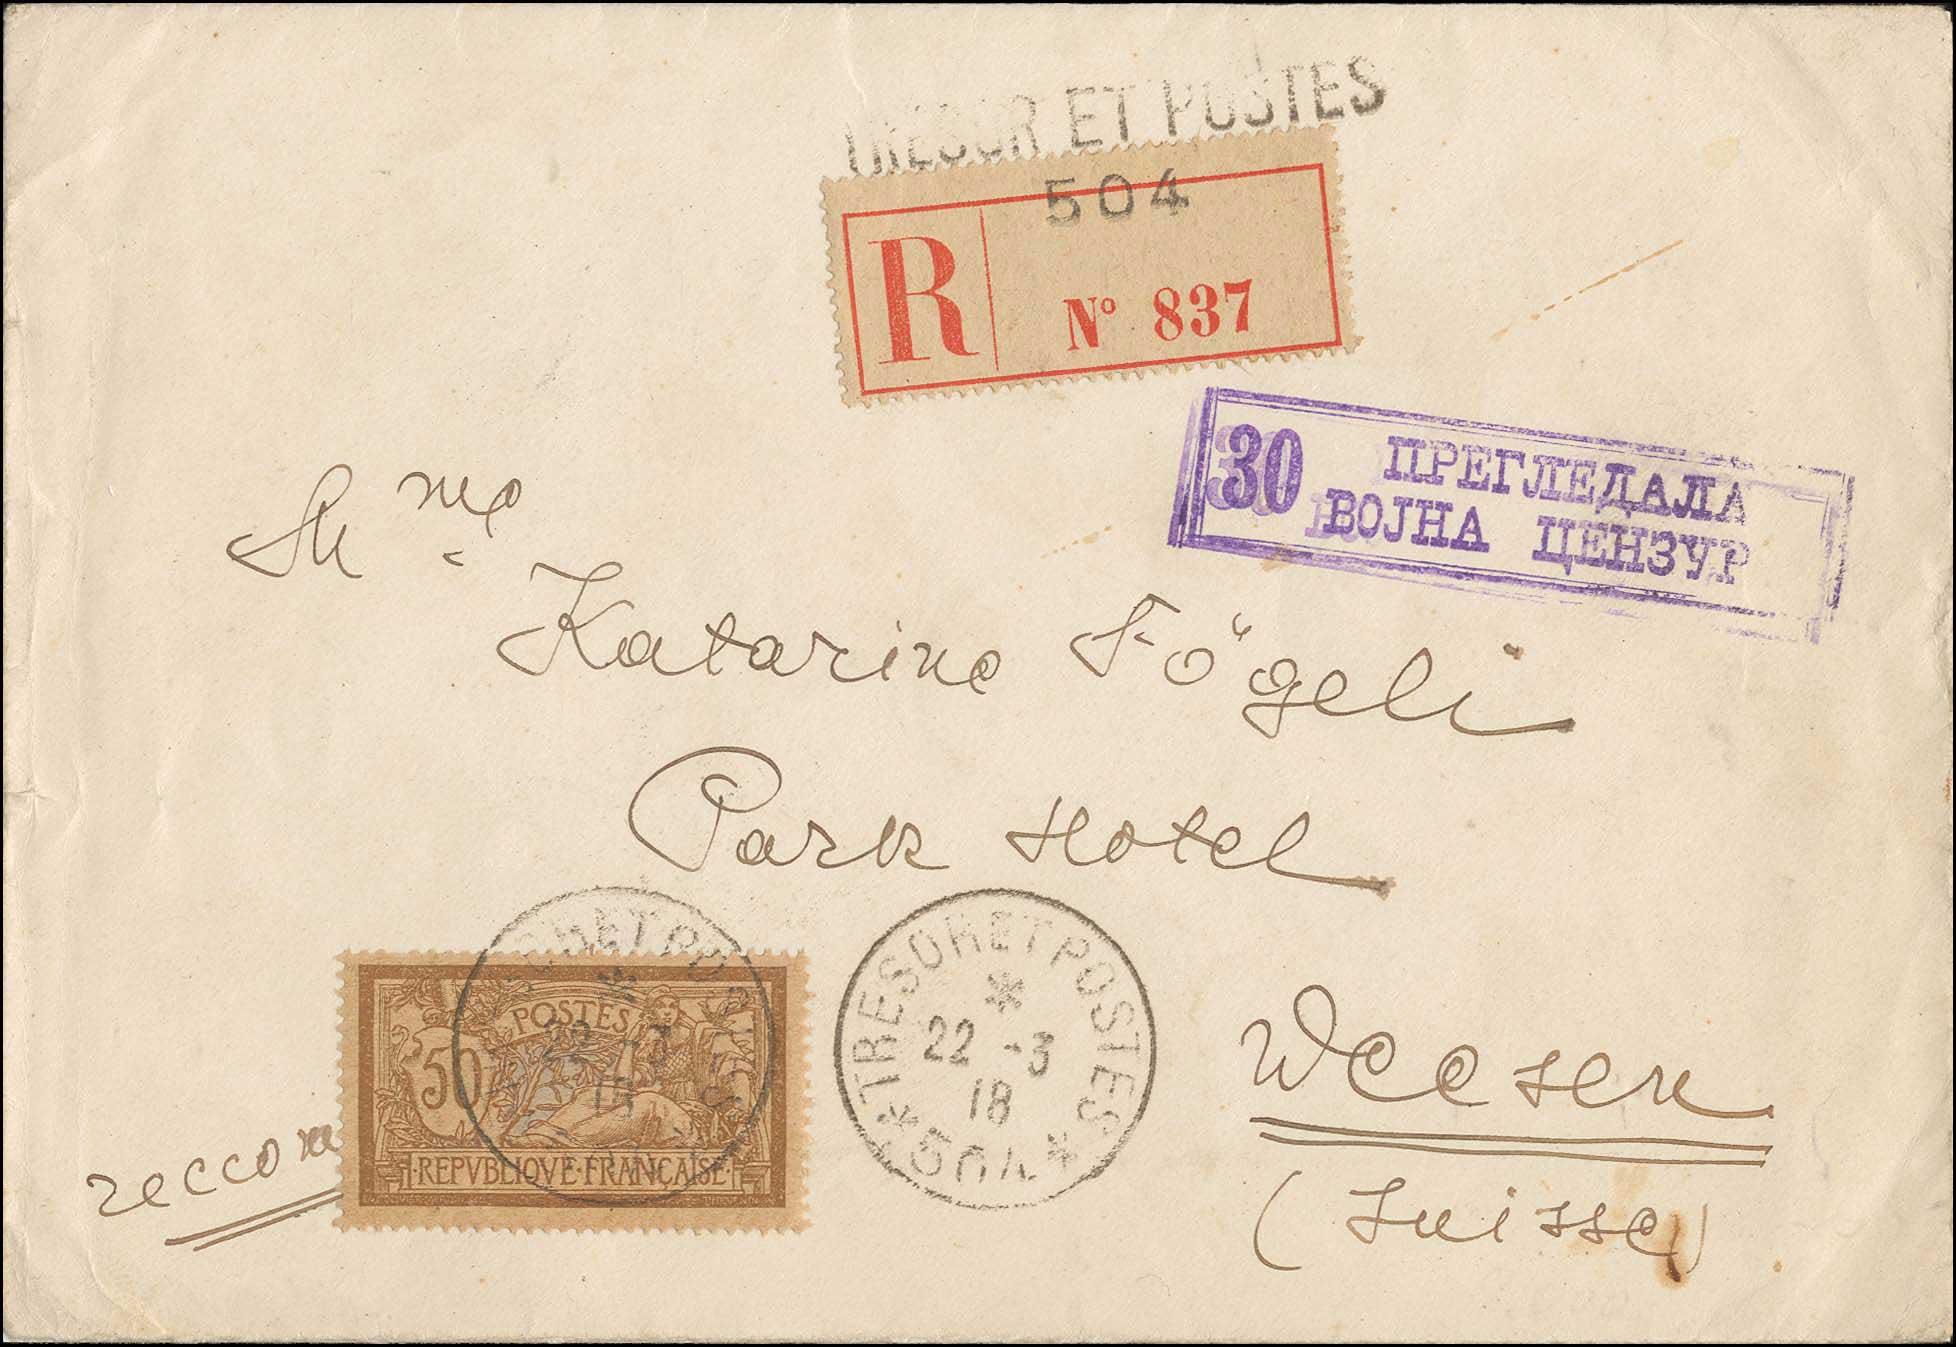 TRESOR ET POSTES
504
R Nº 837
30 ПРЕГЛЕДАЛА
ВОЈНА ЦЕНЗУР
Mme
Katarine Fögeli
Park Hotel
Weesen
(Suisse)
reccom
POSTES
50
REPVBLIQVE·FRANÇAISE
22 -3
18
TRESOR ET POSTES
22 -3
18
*504*